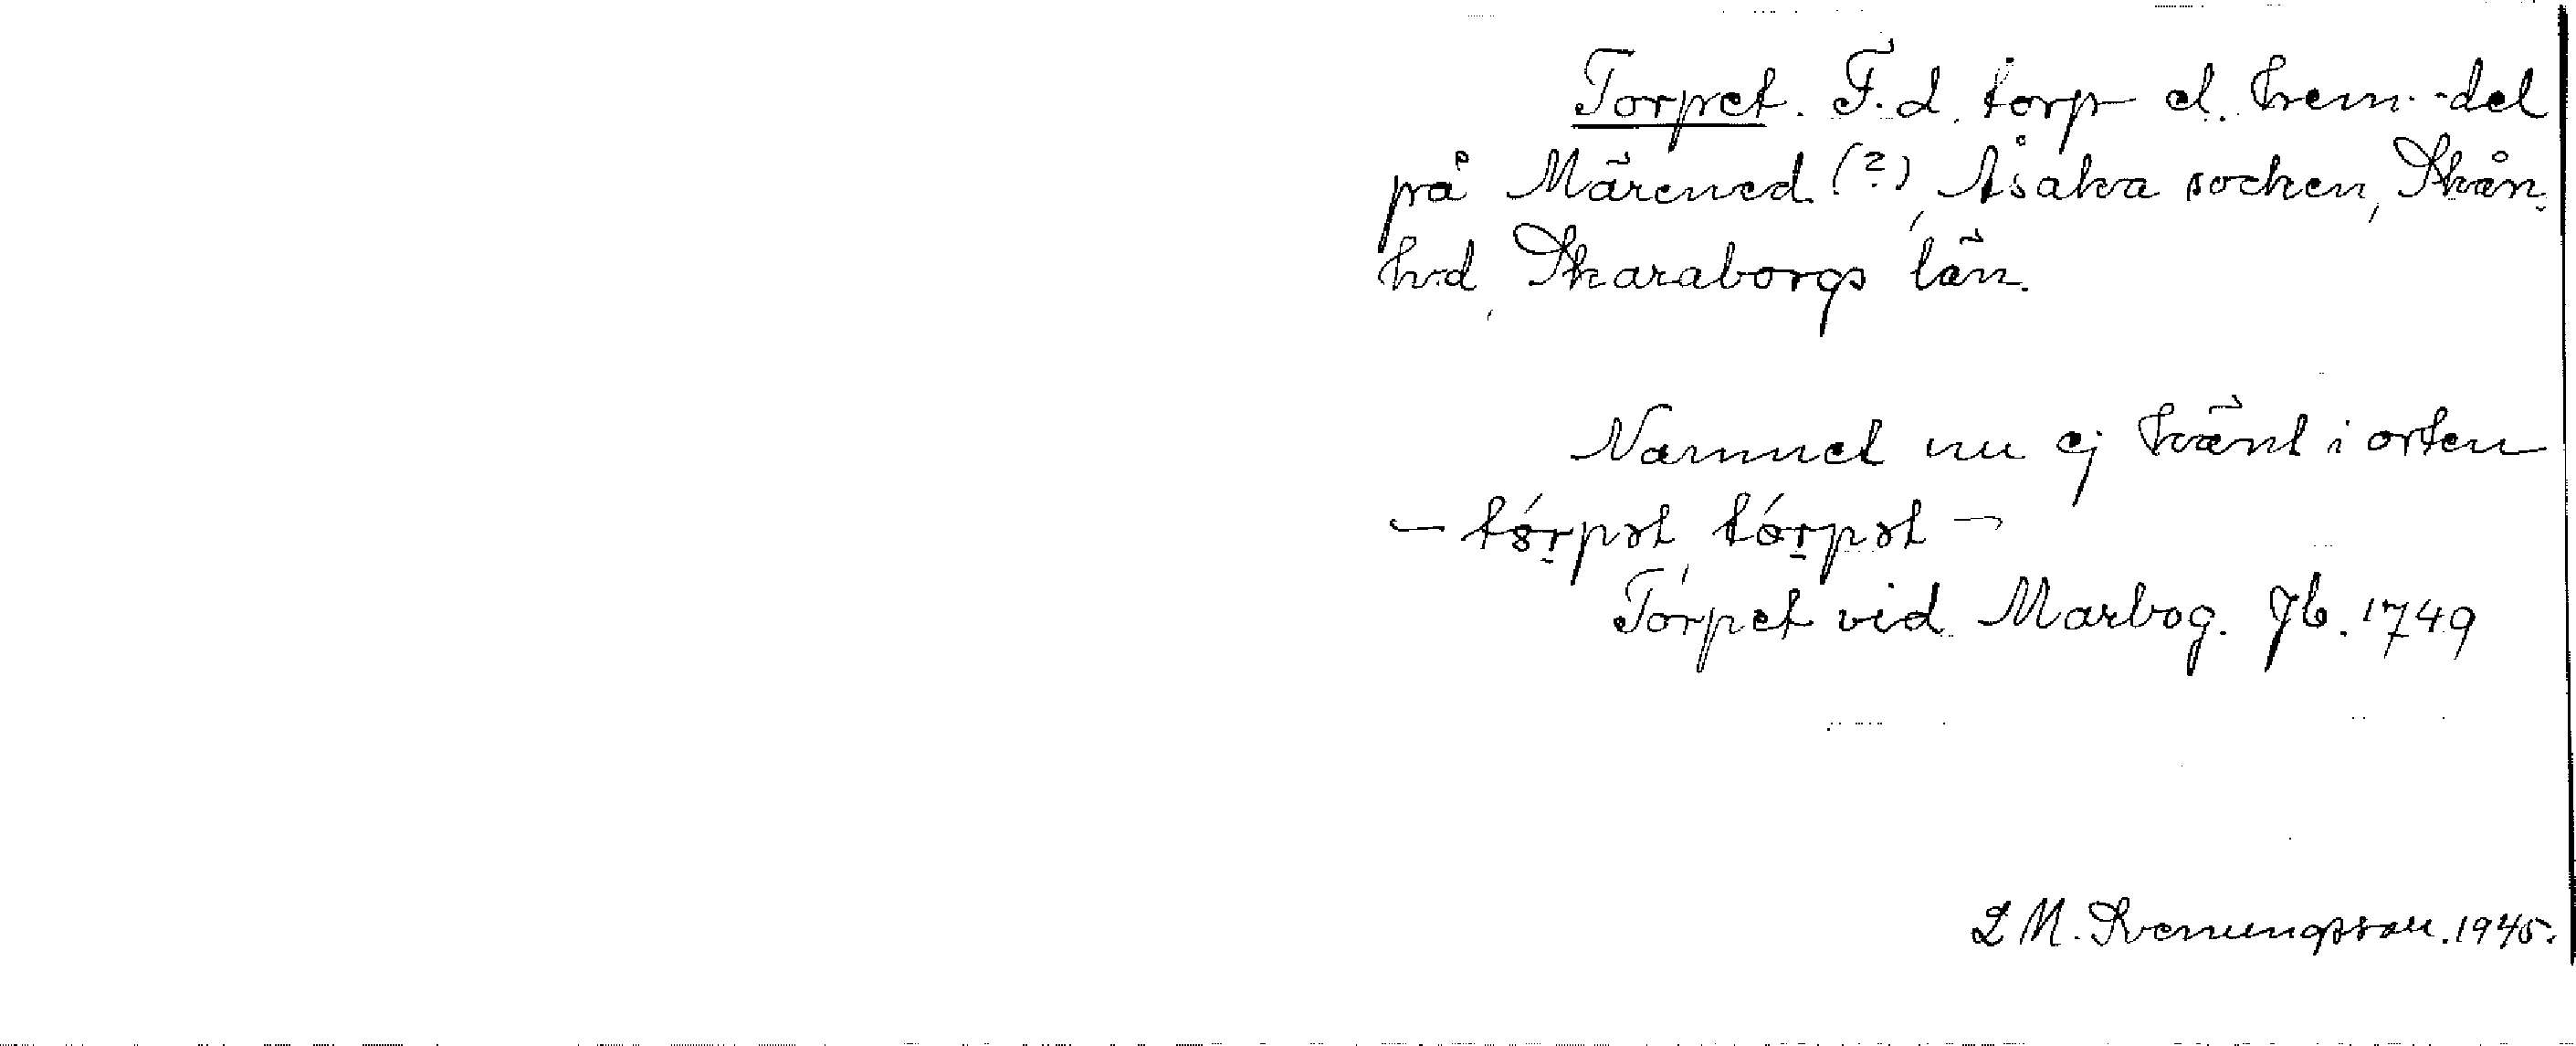 Torpet. F. d. torp el. hem.-del
på Märened (?), Åsaka socken, Skån.
hd, Skaraborgs län.
Namnet nu ej känt i orten
Torpet vid Marbog. Jb. 1749
L M. Svenungsson. 1945.